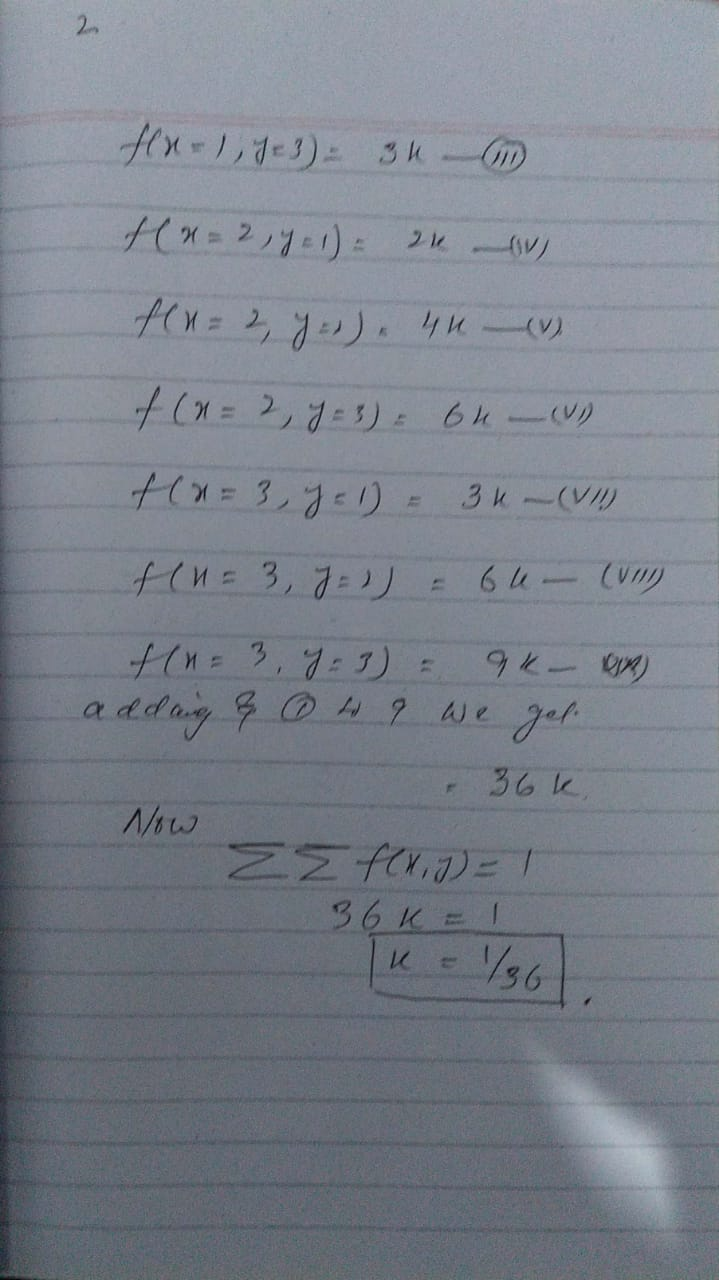 2
f(x=1, y=3) = 3k — (III)
f(x=2, y=1) = 2k — (IV)
f(x=2, y=2) = 4k — (V)
f(x=2, y=3) = 6k — (VI)
f(x=3, y=1) = 3k — (VII)
f(x=3, y=2) = 6k — (VIII)
f(x=3, y=3) = 9k —
adding ① to 9 we get
= 36k.
Now
ΣΣ f(x,y) = 1
36k = 1
k = 1/36.